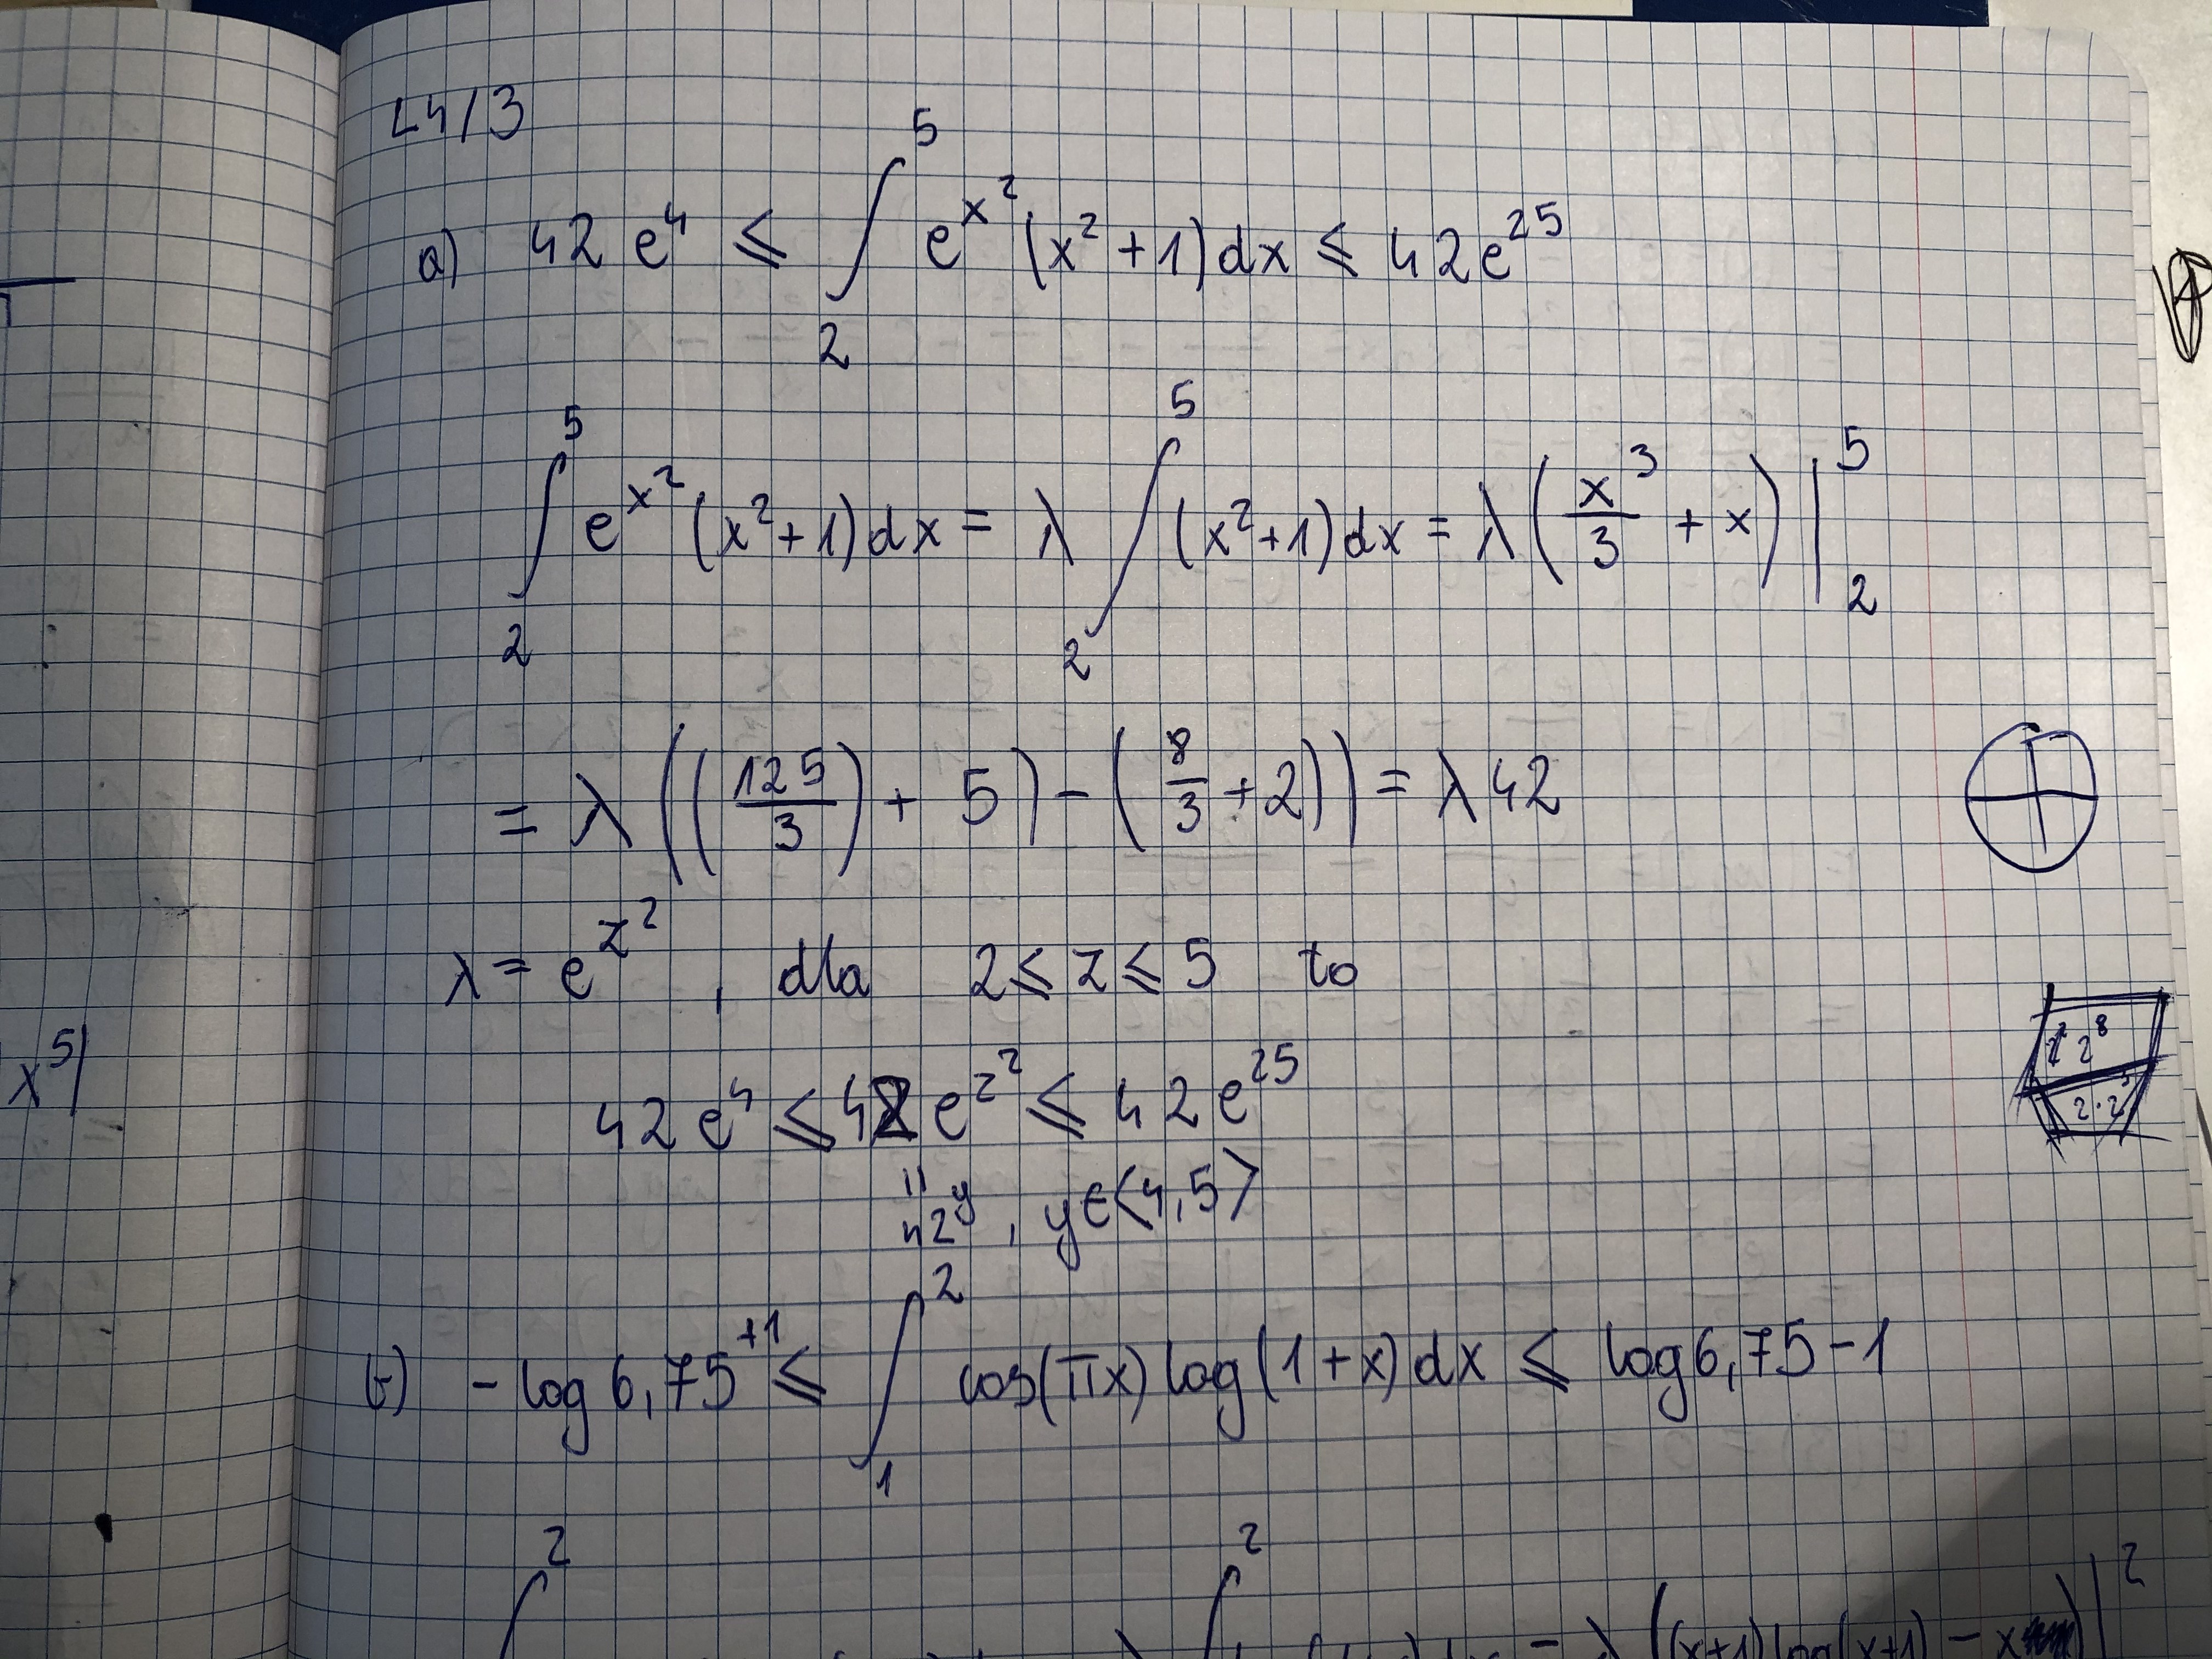 L4/3
a) 42 e^4 ≤ ∫_2^5 e^{x^2} (x^2 + 1) dx ≤ 42 e^{25}
∫_2^5 e^{x^2} (x^2+1) dx = λ ∫_2^5 (x^2+1) dx = λ (x^3/3 + x) |_2^5
= λ ((125/3) + 5) - (8/3 + 2)) = λ 42
λ = e^{z^2} , dla 2 ≤ z ≤ 5 to
x^5|
2^8
2·2^3
42 e^4 ≤ 42 e^{z^2} ≤ 42 e^{25}
||
42^y , y∈<4,5>
b) - log 6,75 +1 ≤ ∫_1^2 cos(πx) log(1+x) dx ≤ log 6,75 - 1
∫^2 λ ∫^2 = λ ((x+1) log(x+1) - x) |^2